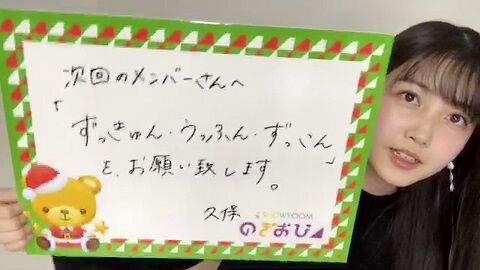 次回のメンバーさんへ
「ずっきゅん・うっふん・ずっこん」
を、お願い致します。
久保
SHOWROOM
のぎおび